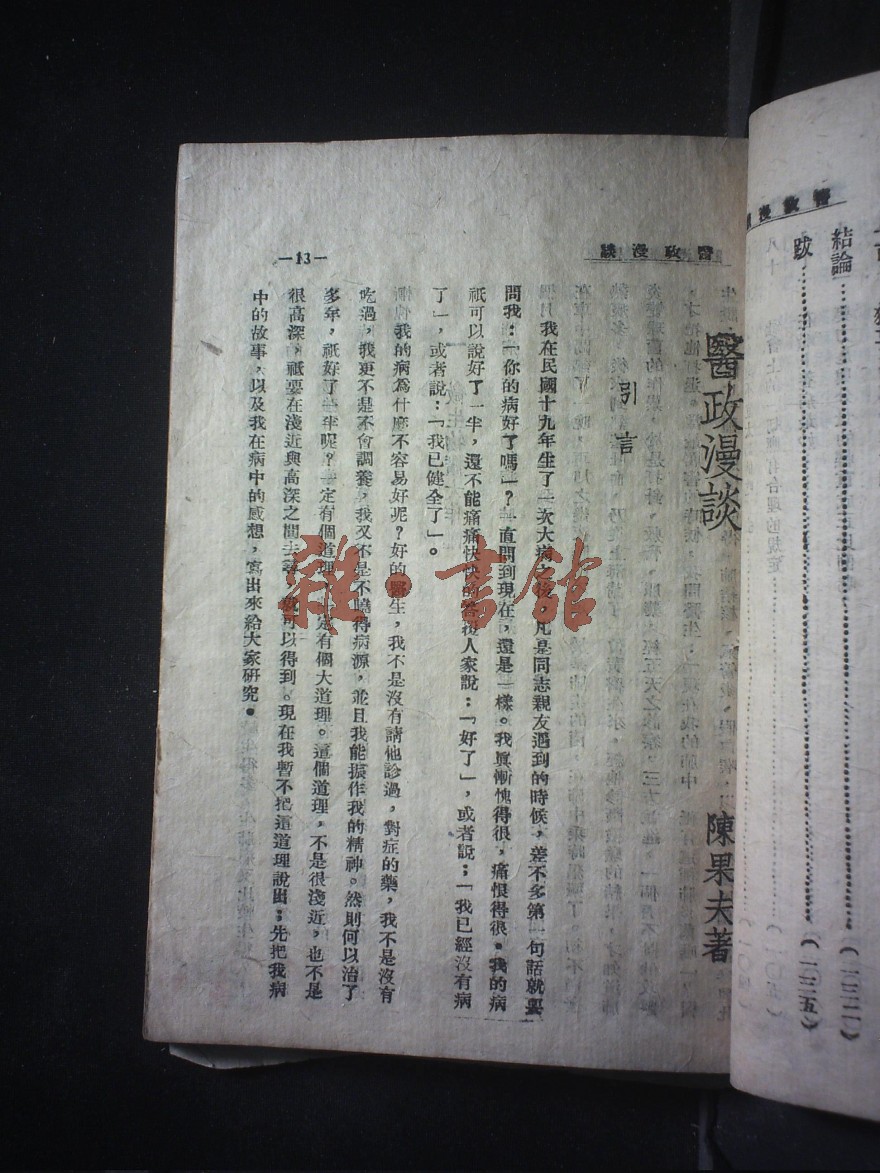 結論
(二三二)
跋
(二三五)
醫政漫談
—13—
醫政漫談
陳果夫著
引言
我在民國十九年生了一次大病之後，凡是同志親友遇到的時候，差不多第一句話就要
問我：「你的病好了嗎」？一直問到現在，還是一樣。我眞慚愧得很，痛恨得很。我的病
祇可以說好了一半，還不能痛痛快快的答復人家說：「好了」，或者說；「我已經沒有病
了」，或者說：「我已健全了」。
我的病為什麼不容易好呢？好的醫生，我不是沒有請他診過，對症的藥，我不是沒有
吃過，我更不是不會調養，我又不是不曉得病源，並且我能振作我的精神。然則何以治了
多年，祇好了一半呢？一定有個道理，一定有個大道理。這個道理，不是很淺近，也不是
很高深，祇要在淺近與高深之間去尋，就可以得到。現在我暫不把這道理說出；先把我病
中的故事，以及我在病中的感想，寫出來給大家研究。
雜·書館